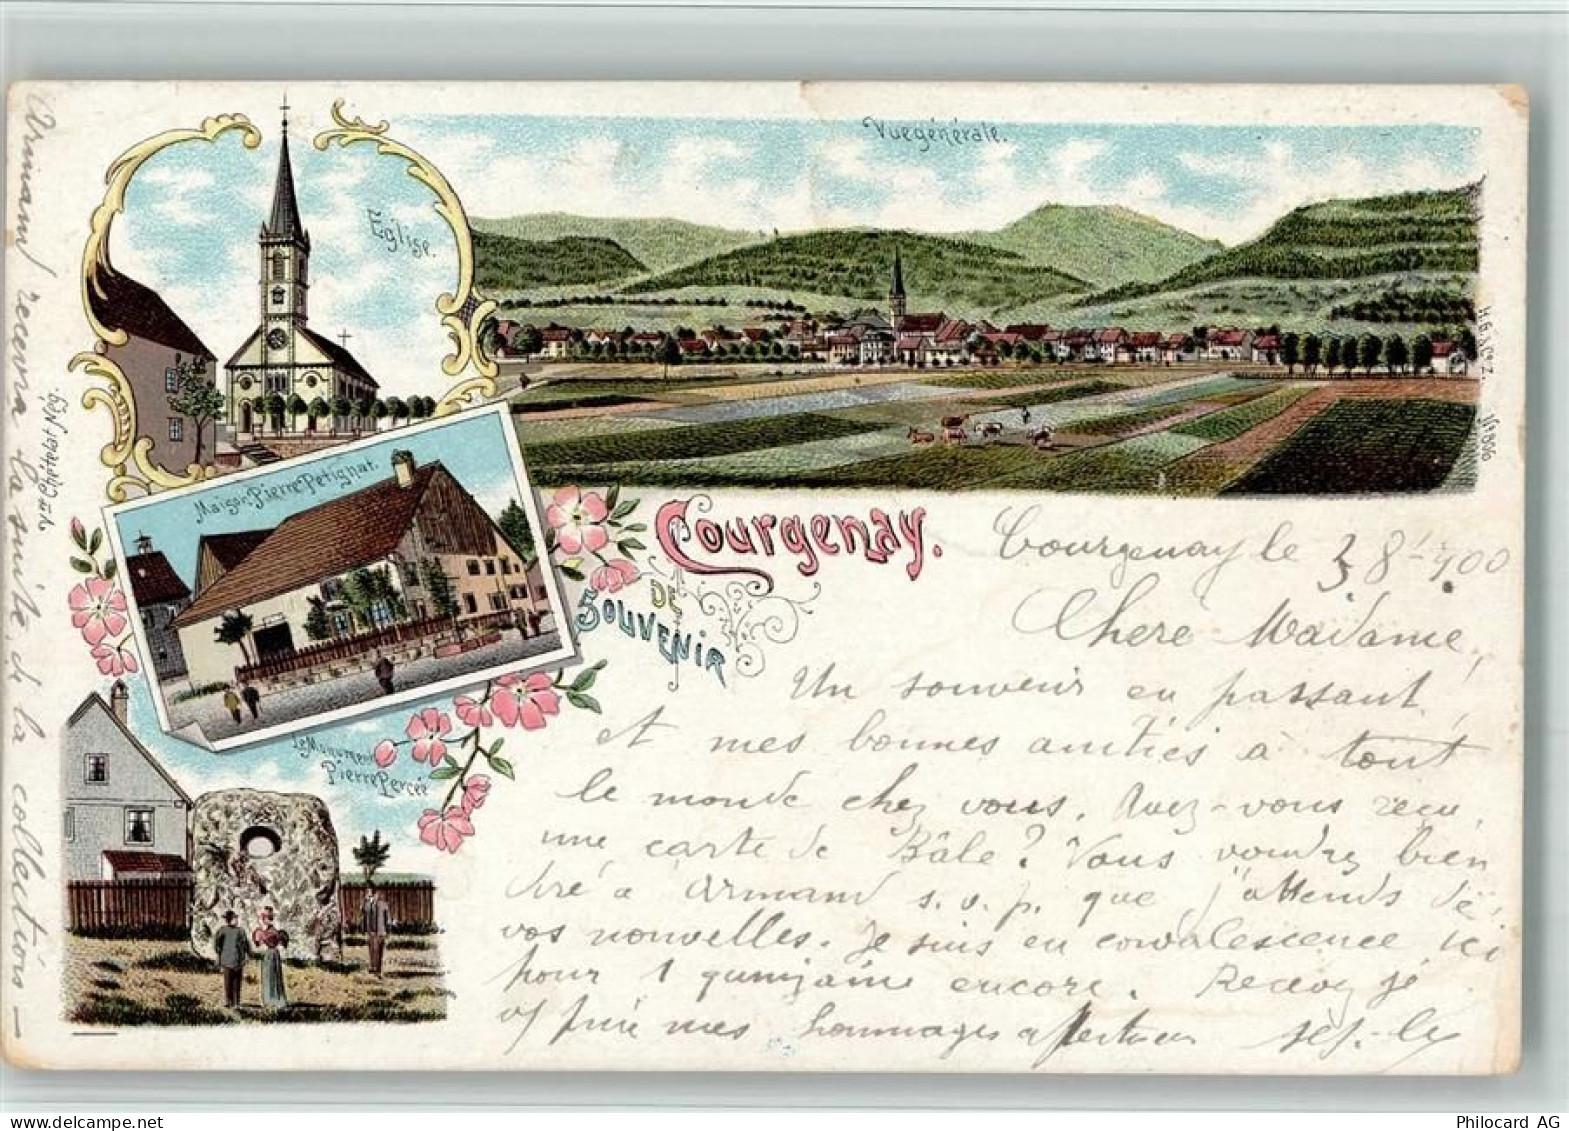 Vue générale.
Eglise.
Maison Pierre Petignat.
Le Monument
Pierre Percée
Courgenay.
SOUVENIR
DE
Vve Chételat, Nég.
No 806
Courgenay le 3 8 - 900
Chère Madame,
Un souvenir en passant,
et mes bonnes amitiés à tout
le monde chez vous. Avez-vous reçu
une carte de Bâle? Vous voudrez bien
dire à Armand s.v.p. que j'attends de
vos nouvelles. Je suis en convalescence ici
pour 1 quinzaine encore. Recevez je
mes hommages
Armand recevra la suite de la collection -
Philocard AG